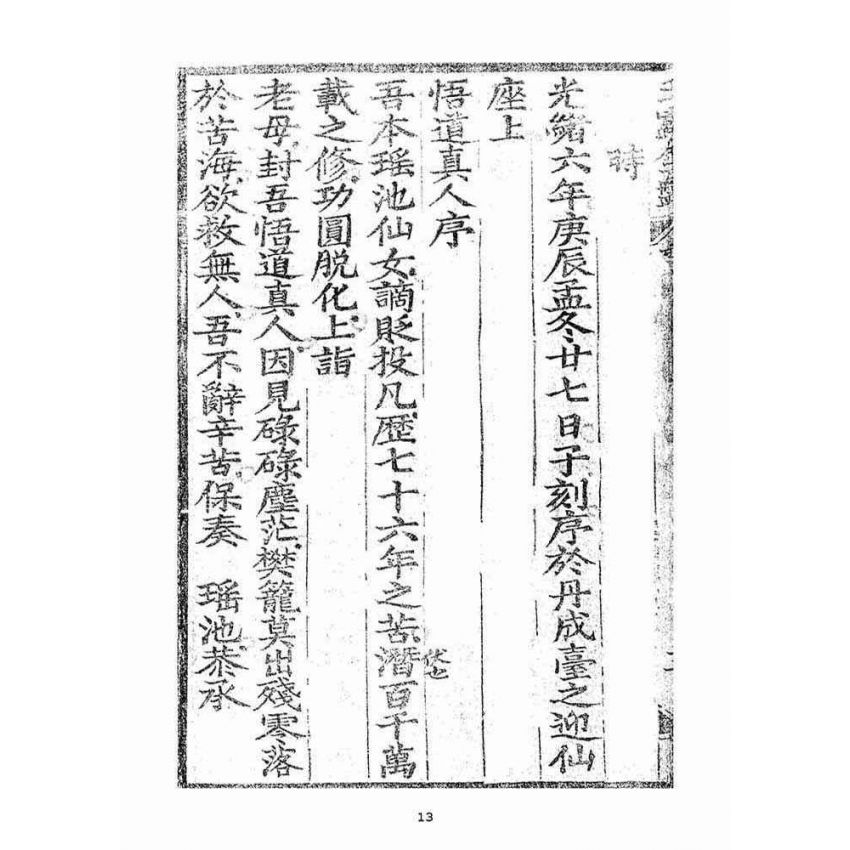 時
光緒六年庚辰孟冬廿七日子刻序於丹成臺之迎仙
座上
悟道真人序
吾本瑶池仙女謫貶投凡歷七十六年之苦潛百千萬
載之修功圓脱化上詣
老母封吾悟道真人因見碌碌塵茫樊籠莫出殘零落
於苦海欲救無人吾不辭辛苦保奏 瑶池恭承
13